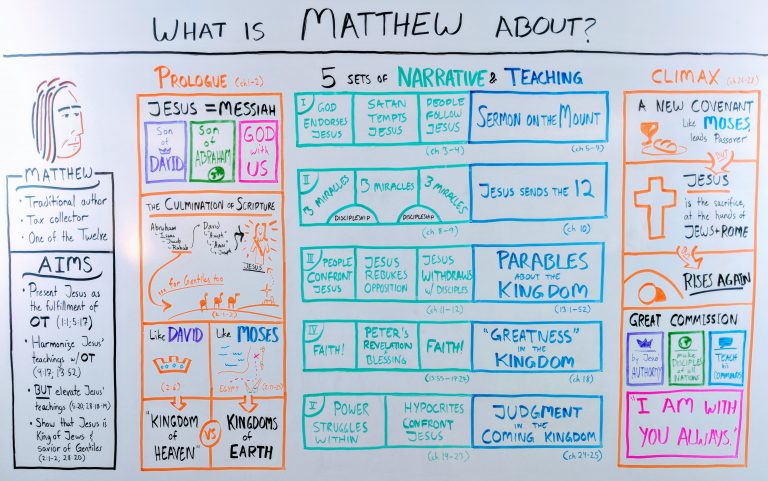 WHAT IS MATTHEW ABOUT?
MATTHEW
• Traditional author
• Tax collector
• One of the Twelve
AIMS
• Present Jesus as
the fulfillment of
OT (1:1; 5:17)
• Harmonize Jesus'
teachings w/OT
(9:17; 13:52)
• BUT elevate Jesus'
teachings
• Show that Jesus is
King of Jews &
savior of Gentiles
(2:1-2; 28:20)
PROLOGUE (ch 1-2)
JESUS = MESSIAH
Son of DAVID
Son of ABRAHAM
GOD with US
THE CULMINATION OF SCRIPTURE
Abraham
David
JESUS
...for Gentiles too
Like DAVID
(2:6)
Like MOSES
Egypt
"KINGDOM
of
HEAVEN"
VS
KINGDOMS
of
EARTH
5 SETS OF NARRATIVE & TEACHING
I GOD
ENDORSES
JESUS
SATAN
TEMPTS
JESUS
PEOPLE
FOLLOW
JESUS
(ch 3-4)
SERMON ON THE
MOUNT
(ch 5-7)
II 3 MIRACLES
3 MIRACLES
3 MIRACLES
DISCIPLESHIP
DISCIPLESHIP
(ch 8-9)
JESUS SENDS THE 12
(ch 10)
III PEOPLE
CONFRONT
JESUS
JESUS
REBUKES
OPPOSITION
JESUS
WITHDRAWS
w/ DISCIPLES
(ch 11-12)
PARABLES
ABOUT THE
KINGDOM
(13:1-52)
IV FAITH!
PETER'S
REVELATION &
BLESSING
FAITH!
"GREATNESS"
IN THE
KINGDOM
(ch 18)
V POWER
STRUGGLES
WITHIN
HYPOCRITES
CONFRONT
JESUS
(ch 19-23)
JUDGMENT
IN THE
COMING KINGDOM
(ch 24-25)
CLIMAX (ch 26-28)
A NEW COVENANT
Like MOSES,
leads Passover
BUT
JESUS
is the sacrifice,
at the hands of
JEWS + ROME
RISES AGAIN
GREAT COMMISSION
by Jesus'
AUTHORITY
MAKE
DISCIPLES
of all
NATIONS
TEACH
his
COMMANDS
"I AM WITH
YOU ALWAYS."